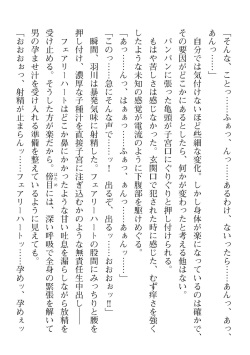 「そんな、ことっ……ふぁっ、んっ……あるわけ、ないったら……あっ、
あんっ……」
　自分では気付けないほど些細な変化。しかし身体が楽になっているのは確かで、
その要因がどこかにあるとしたら、何かが変わったと考える他はない。
　パンパンに張った亀頭が子宮口にぐりぐりと押し付けられる。
　もはや苦しさは感じなかった。玄関口で犯された時に感じた、むず痒さを強く
したような未知の感覚が電流のように下腹部を駆けめぐる。
「あっ……んっ、はぁぁ……っふぅ……あぁんっ……あっ……ふぁぁっ……」
「このっ……急にっ……！　出るぞ、出るっ……おおおぉッ!!」
　瞬間、羽川は暴発気味に射精した。フェアリーハートの股間にみっちりと腰を
押し付け、濃厚な子種汁を直接子宮に注ぎ込むかのような無責任生中出し――を
受け止める。そうした方が楽だから。傍目には、深い呼吸で全身の緊張を解いて
フェアリーハートはどこか鼻にかかったような甘い吐息を漏らしながら放精を
男の孕ませ汁を受け入れる準備を整えているように見えても。
「おおおぉっ、射精が止まらんっ……フェアリーハートっ……孕めッ、孕めぇッ